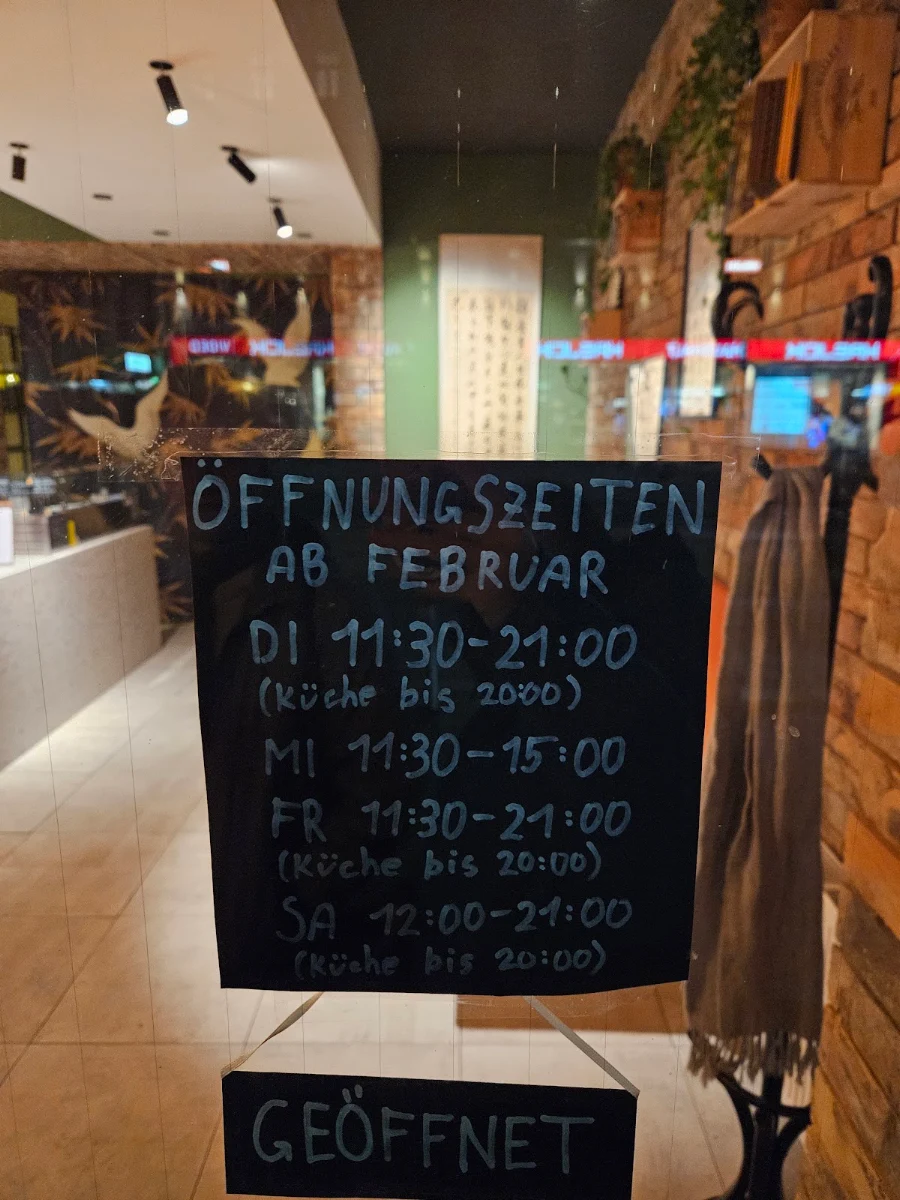 ÖFFNUNGSZEITEN
AB FEBRUAR
DI 11:30-21:00
(Küche bis 20:00)
MI 11:30-15:00
FR 11:30-21:00
(Küche bis 20:00)
SA 12:00-21:00
(Küche bis 20:00)
GEÖFFNET